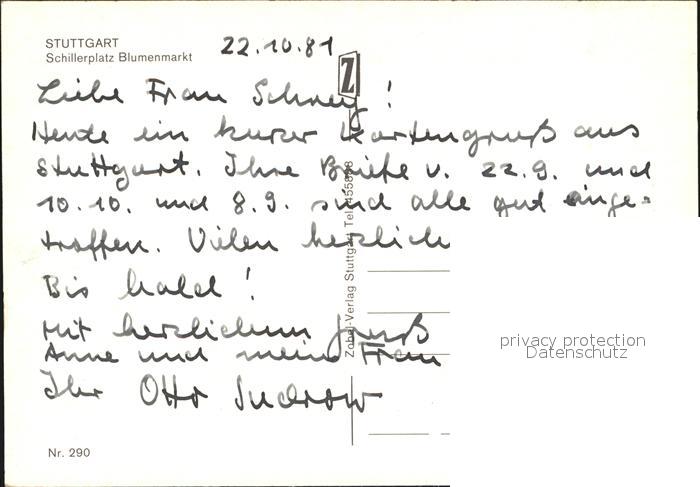 STUTTGART
Schillerplatz Blumenmarkt
22.10.81
Z
Liebe Frau
Heute ein kurzer Kartengruß aus
Stuttgart. Ihre Briefe v. 22.9. und
10.10. und 8.9. sind alle gut einge-
troffen. Vielen herzlich
Bis bald!
Mit herzlichem Gruß
Anne und meine Frau
Ihr Otto
Nr. 290
Zobel-Verlag Stuttgart Tel.
privacy protection
Datenschutz